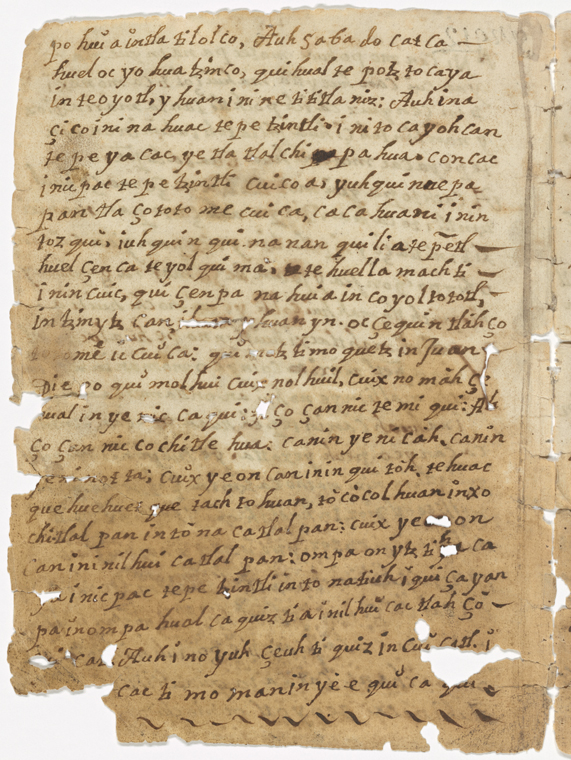 po huia in tla tilolco, Auh çabado catca
huel oc yo hua tzinco, qui hual te potz tocaya
in teoyotl, y huan i ni ne titla niz: Auh in a
çico in i na huac tepe tzintli i ni to cayohcan
te pe ya cac, ye tla tlalchi pa hua concac
inic pac te pe tzintli cuicoa, yuhqui nepa
pan tla ço toto me cuica, ca ca huani i nin
toz qui, iuh quin qui nanan quilia tepetl
huel çen ca te yol qui ma, te huellamach ti
i nin cuic, qui çen pa na huia in coyoltototl,
in tzinitz can huan yn oc çequin tlahço
to me ic cuica: tz timo quetz in Juan
Die go qui mol hui cuix nol huil, cuix no mah
hual in ye nic ca qui: ço çan nic te mi qui: At
ço çan nic cochitle hua: canin ye ni cah, canin
ye ni not ta; cuix ye on can in in qui toh. tehuac
que huehuet que tach to huan, to còcol huan in xo
chitlal pan in to na catlal pan: cuix ye on
can in in ilhui catlal pan: ompa on ytz ti ca
inic pac tepe tzintli in to natiuh i qui ça yan
pa in ompa hual ca quiz tia in ilhui cac tlahço
cui ca Auh i no yuh çeuh ti quiz in cuicatl. i
cac ti mo man in ye e qui ca qui